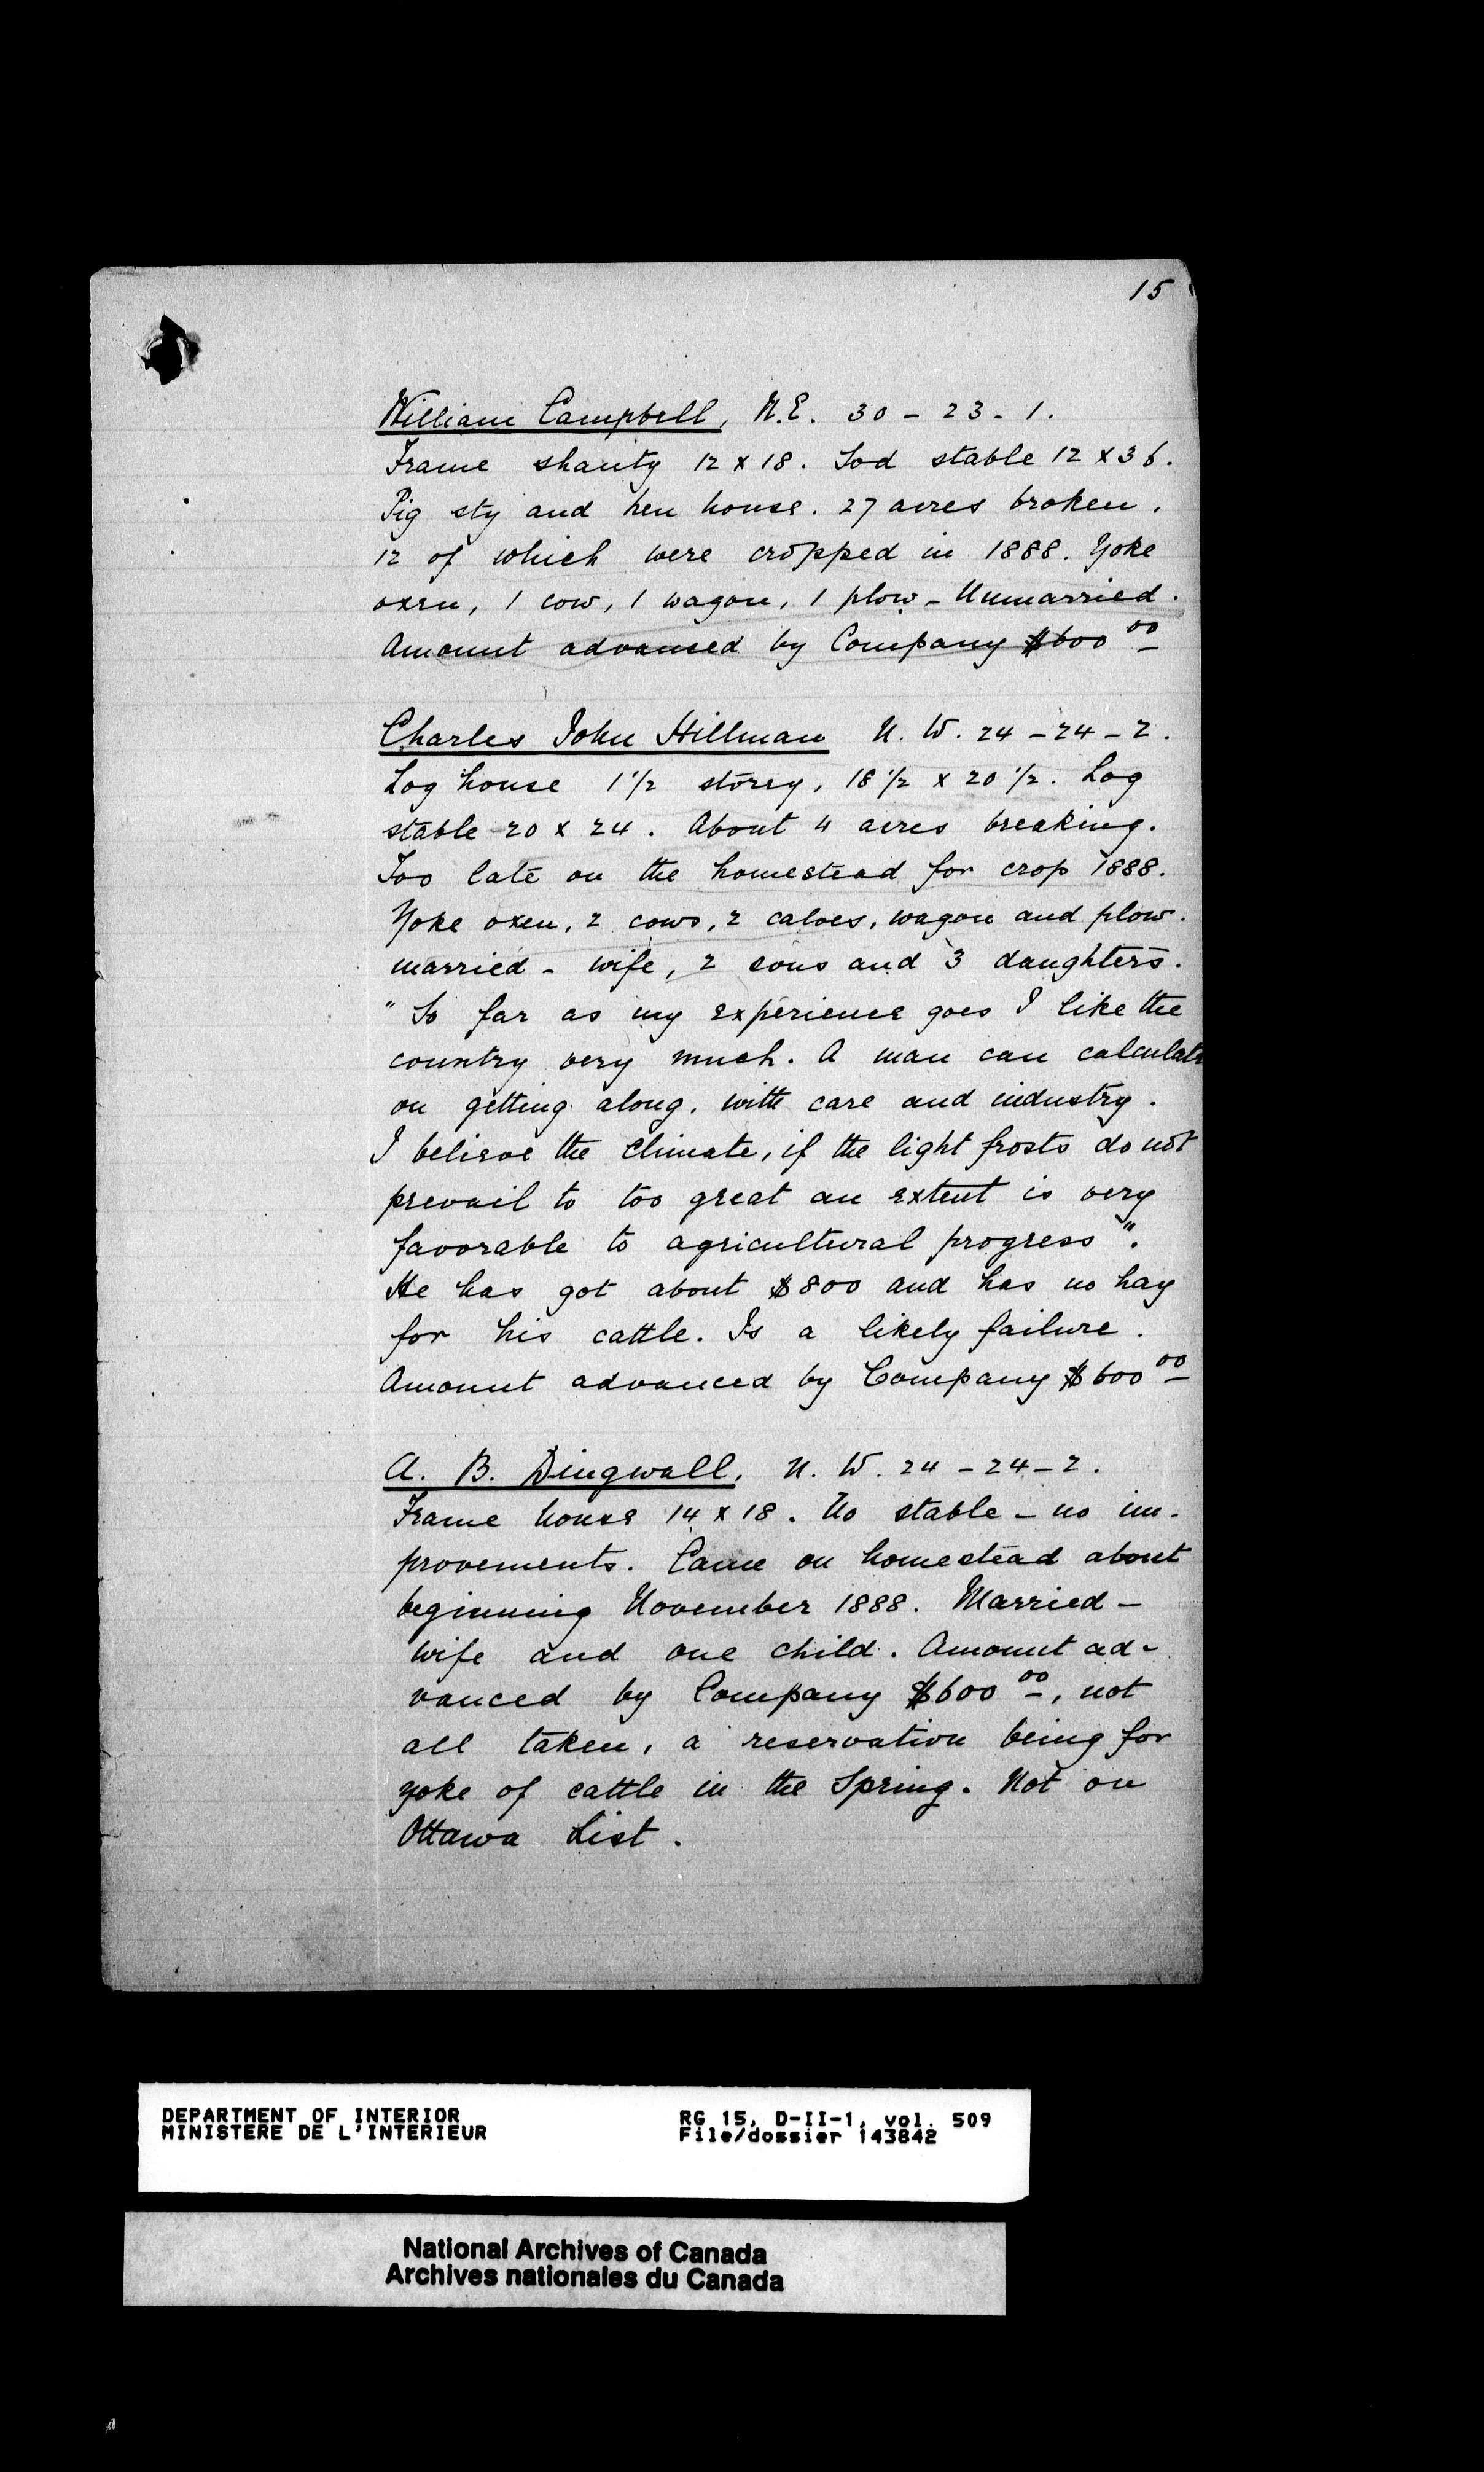 15
William Campbell, N.E. 30 - 23 - 1.
Frame shanty 12 x 18. Sod stable 12 x 36.
Pig sty and hen house. 27 acres broken,
12 of which were cropped in 1888. Yoke
oxen, 1 cow, 1 wagon, 1 plow - Unmarried.
Amount advanced by Company $600 00
Charles John Hillman N. W. 24 - 24 - 2.
Log house 1 1/2 storey, 18 1/2 x 20 1/2. Log
stable 20 x 24. About 4 acres breaking.
Too late on the homestead for crop 1888.
Yoke oxen, 2 cows, 2 calves, wagon and plow.
married - wife, 2 sons and 3 daughters.
"So far as my experience goes I like the
country very much. A man can calculate
on getting along, with care and industry.
I believe the climate, if the light frosts do not
prevail to too great an extent is very
favorable to agricultural progress".
He has got about $800 and has no hay
for his cattle. Is a likely failure.
Amount advanced by Company $600 00
A. B. Dingwall, N. W. 24 - 24 - 2.
Frame house 14 x 18. No stable - no im-
provements. Came on homestead about
beginning November 1888. Married -
wife and one child. Amount ad-
vanced by Company $600 00, not
all taken, a reservation being for
yoke of cattle in the Spring. Not on
Ottawa List.
DEPARTMENT OF INTERIOR
MINISTERE DE L'INTERIEUR
RG 15, D-II-1, vol. 509
File/dossier 143842
National Archives of Canada
Archives nationales du Canada